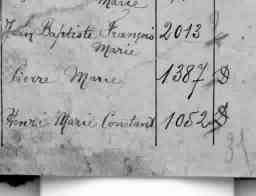 Marie
Jean Baptiste François 2013
Marie
Pierre Marie 1387 D
Henri Marie Constant 1052 D
31